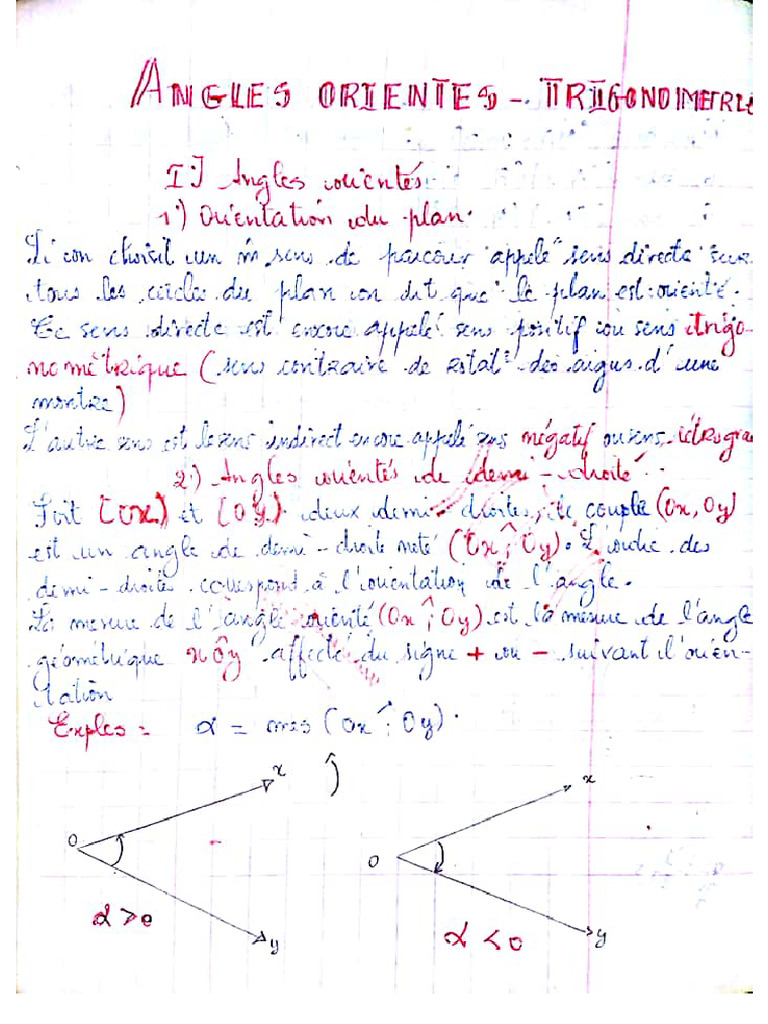 ANGLES ORIENTES - TRIGONOIMETRIE
I] Angles orientés
1°) Orientation du plan.
Si l'on choisit un m̂ sens de parcour appelé "sens directe" sur
tous les cercles du plan on dit que le plan est orienté.
Ce sens directe est encore appelé sens positif ou sens trigo-
nométrique (sens contraire de rotat° des aigus d'une
montre)
L'autre sens est le sens indirect encore appelé sens négatif ou sens rétrogra
2°) Angles orientés de demi-droite
Soit [ox) et [oy) deux demi-droites, le couple (Ox, Oy)
est un angle de demi-droite noté (Ox ; Oy). L'ordre des
demi-droites correspond à l'orientation de l'angle.
La mesure de l'angle orienté (Ox ; Oy) est la mesure de l'angle
géométrique xÔy affecté du signe + ou - suivant l'orien-
tation
Exples = α = mes (Ox ; Oy).
x x
O O
y y
α > 0 α < 0